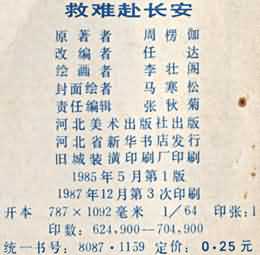 救难赴长安
原著者 周楞伽
改编者 任达
绘画者 李壮阁
封面绘者 马寒松
责任编辑 张秋菊
河北美术出版社出版
河北省新华书店发行
旧城装潢印刷厂印刷
1985年5月第1版
1987年12月第3次印刷
开本 787×1092毫米 1/64 印张:1
印数:624,900—704,900
统一书号:8087·1159 定价:0.25元